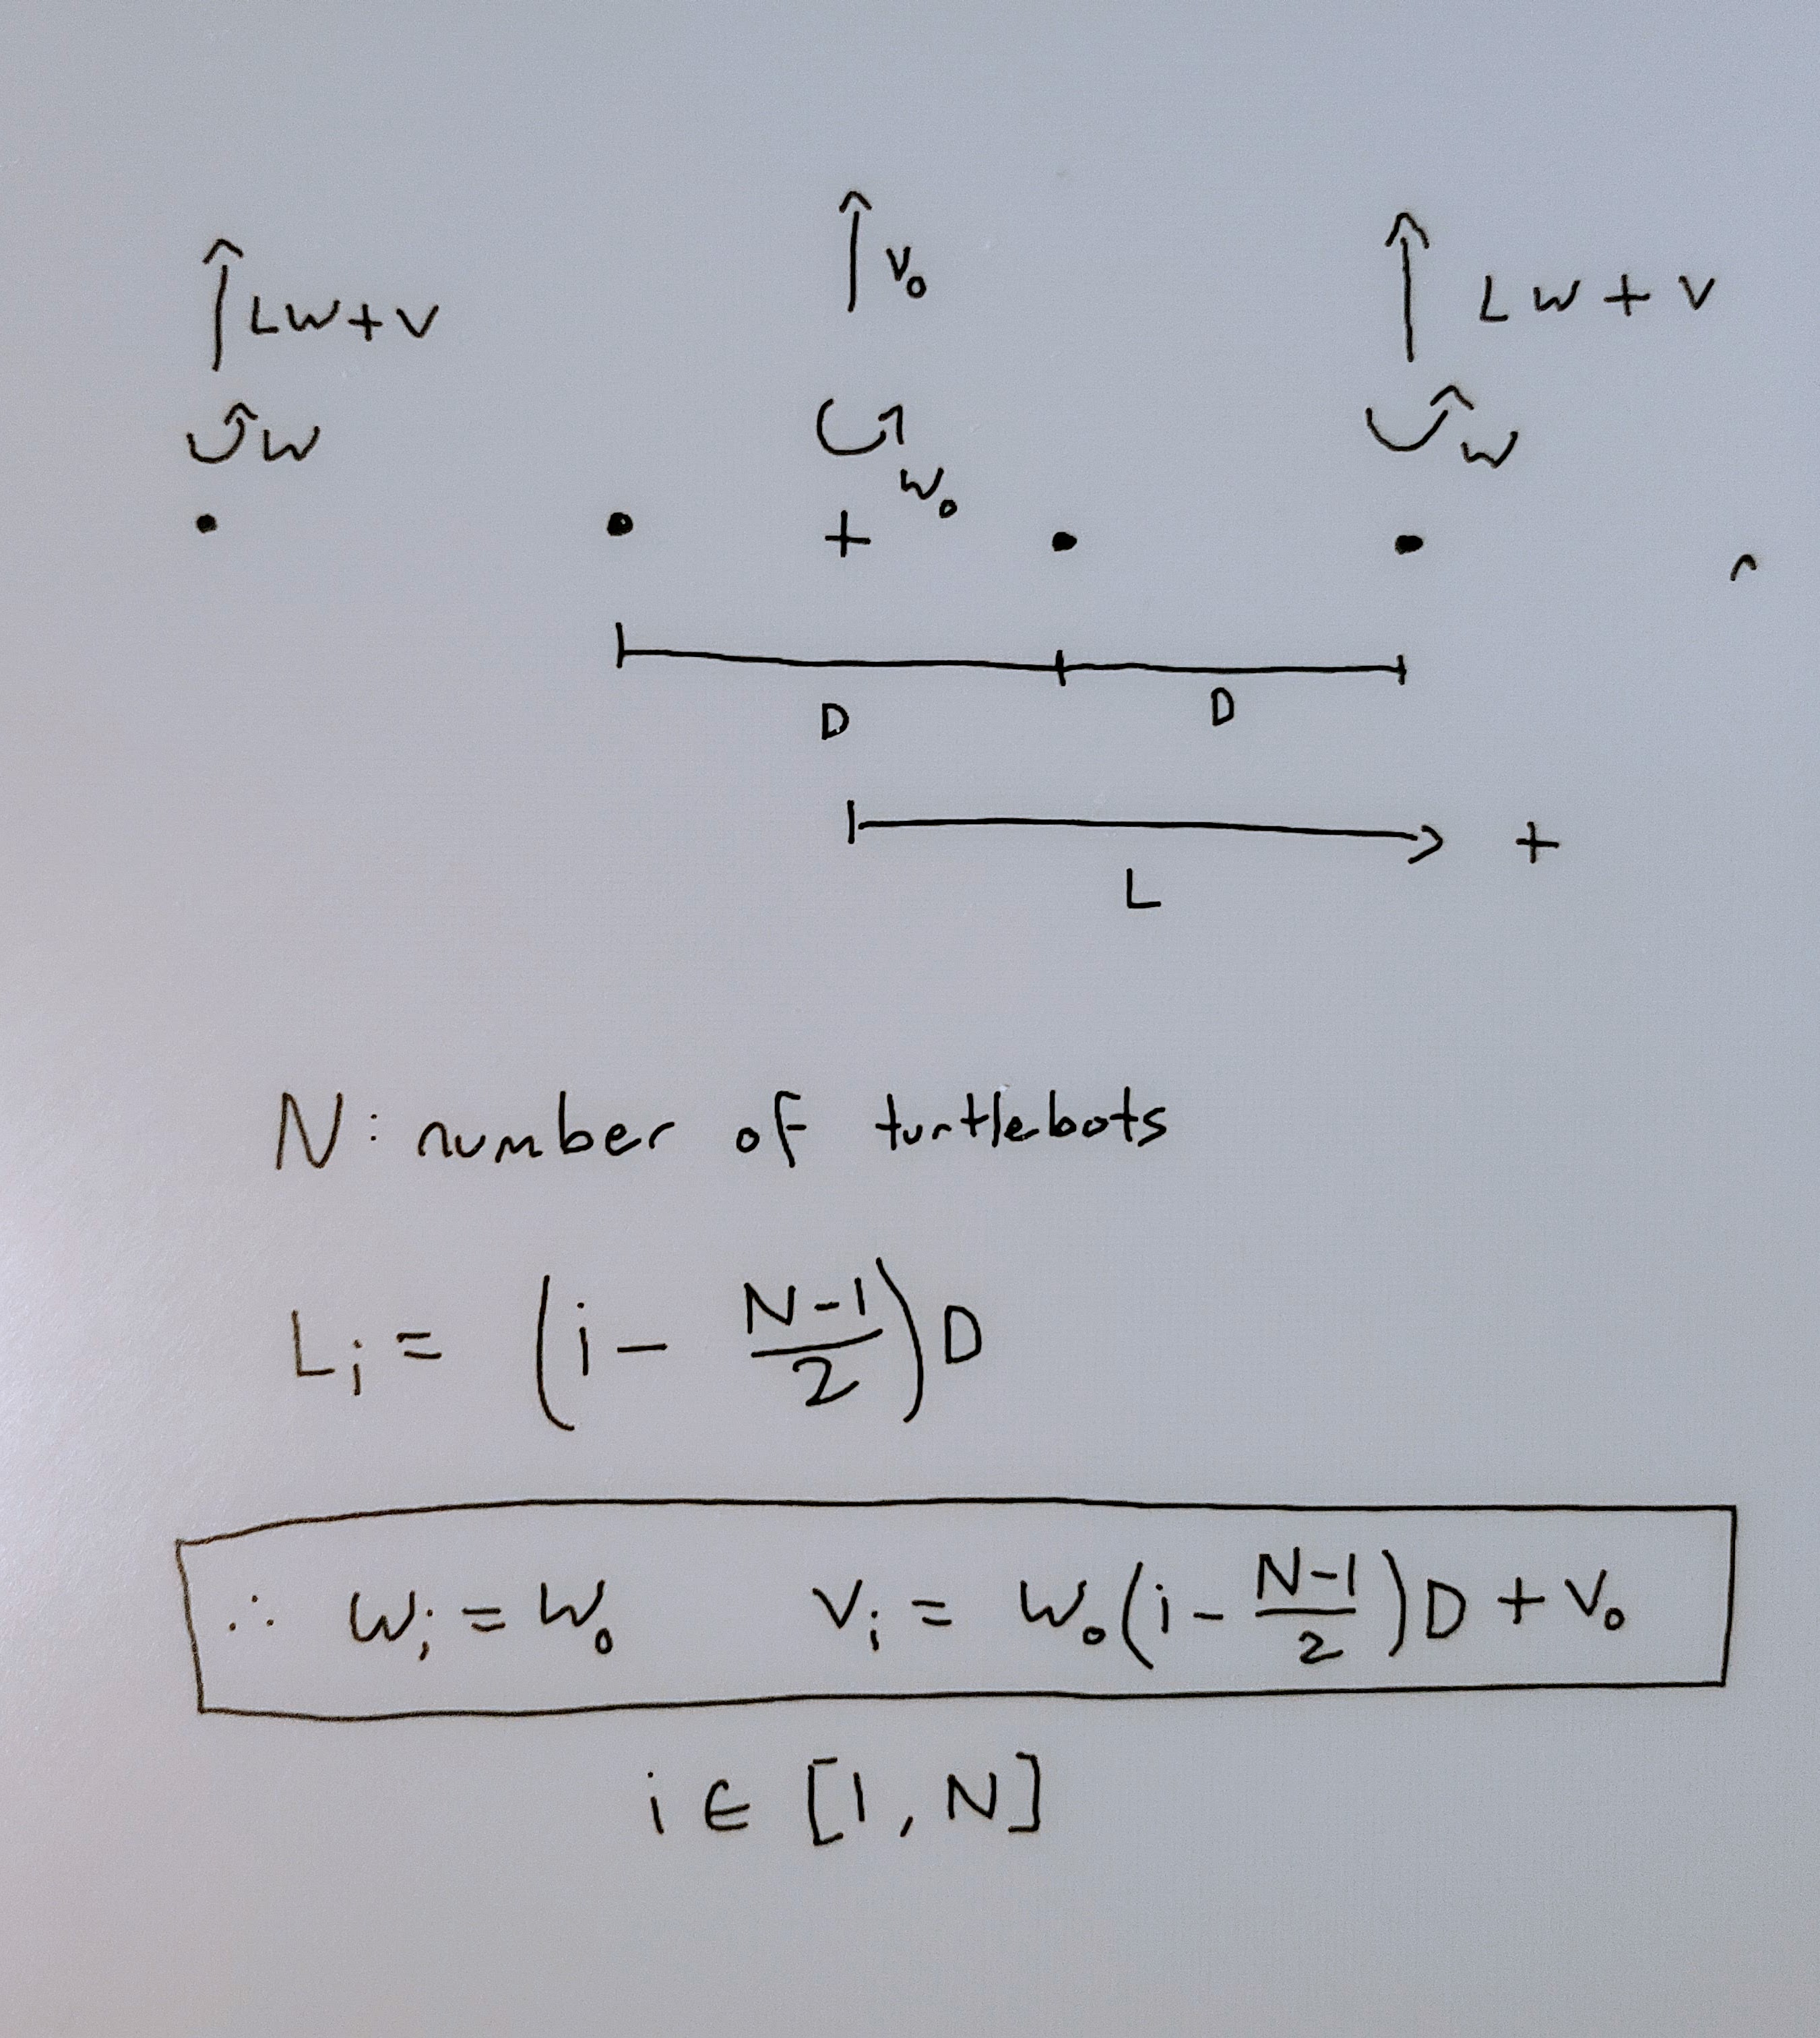 V₀
LW+V
LW+V
W
W
W₀
+
D
D
L
+
N: number of turtlebots
Lᵢ = (i - (N-1)/2)D
∴ Wᵢ = W₀    Vᵢ = W₀(i - (N-1)/2)D + V₀
i ∈ [1, N]